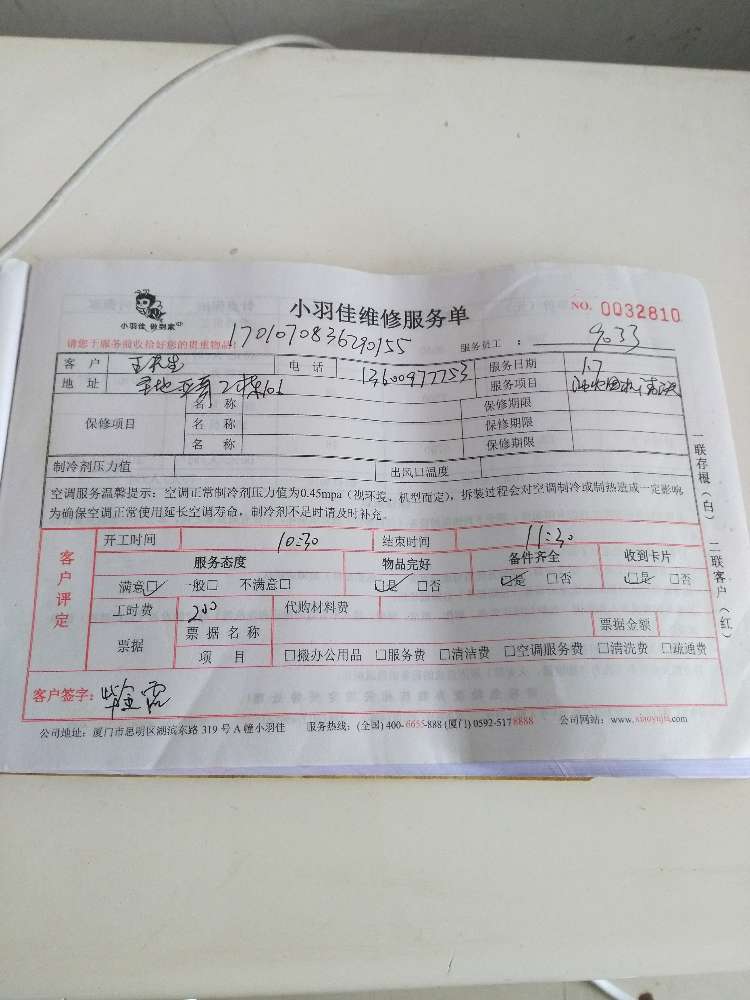 小羽佳 做到家
小羽佳维修服务单
NO. 0032810
请您于服务前收拾好您的贵重物品!
1701070836290155
服务员工 : 9033
客 户 王先生 电 话 13600977753 服务日期 1.7
地 址 2栋101 服务项目
保修项目 名 称 保修期限
名 称 保修期限
名 称 保修期限
制冷剂压力值 出风口温度
空调服务温馨提示:空调正常制冷剂压力值为0.45mpa(视环境、机型而定),拆装过程会对空调制冷或制热造成一定影响
为确保空调正常使用延长空调寿命,制冷剂不足时请及时补充。
客户评定
开工时间 10:30 结束时间 11:30
服务态度 物品完好 备件齐全 收到卡片
满意☑ 一般□ 不满意□ ☑是 □否 ☑是 □否 ☑是 □否
工时费 200 代购材料费
票据 票 据 名 称 票据金额
项 目 □搬办公用品 □服务费 □清洁费 □空调服务费 □清洗费 □疏通费
一联存根(白) 二联客户(红)
客户签字:
公司地址:厦门市思明区湖滨东路 319 号 A 幢小羽佳 服务热线:(全国) 400-6655-888 (厦门) 0592-5178888 公司网站:www.xiaoyujia.com